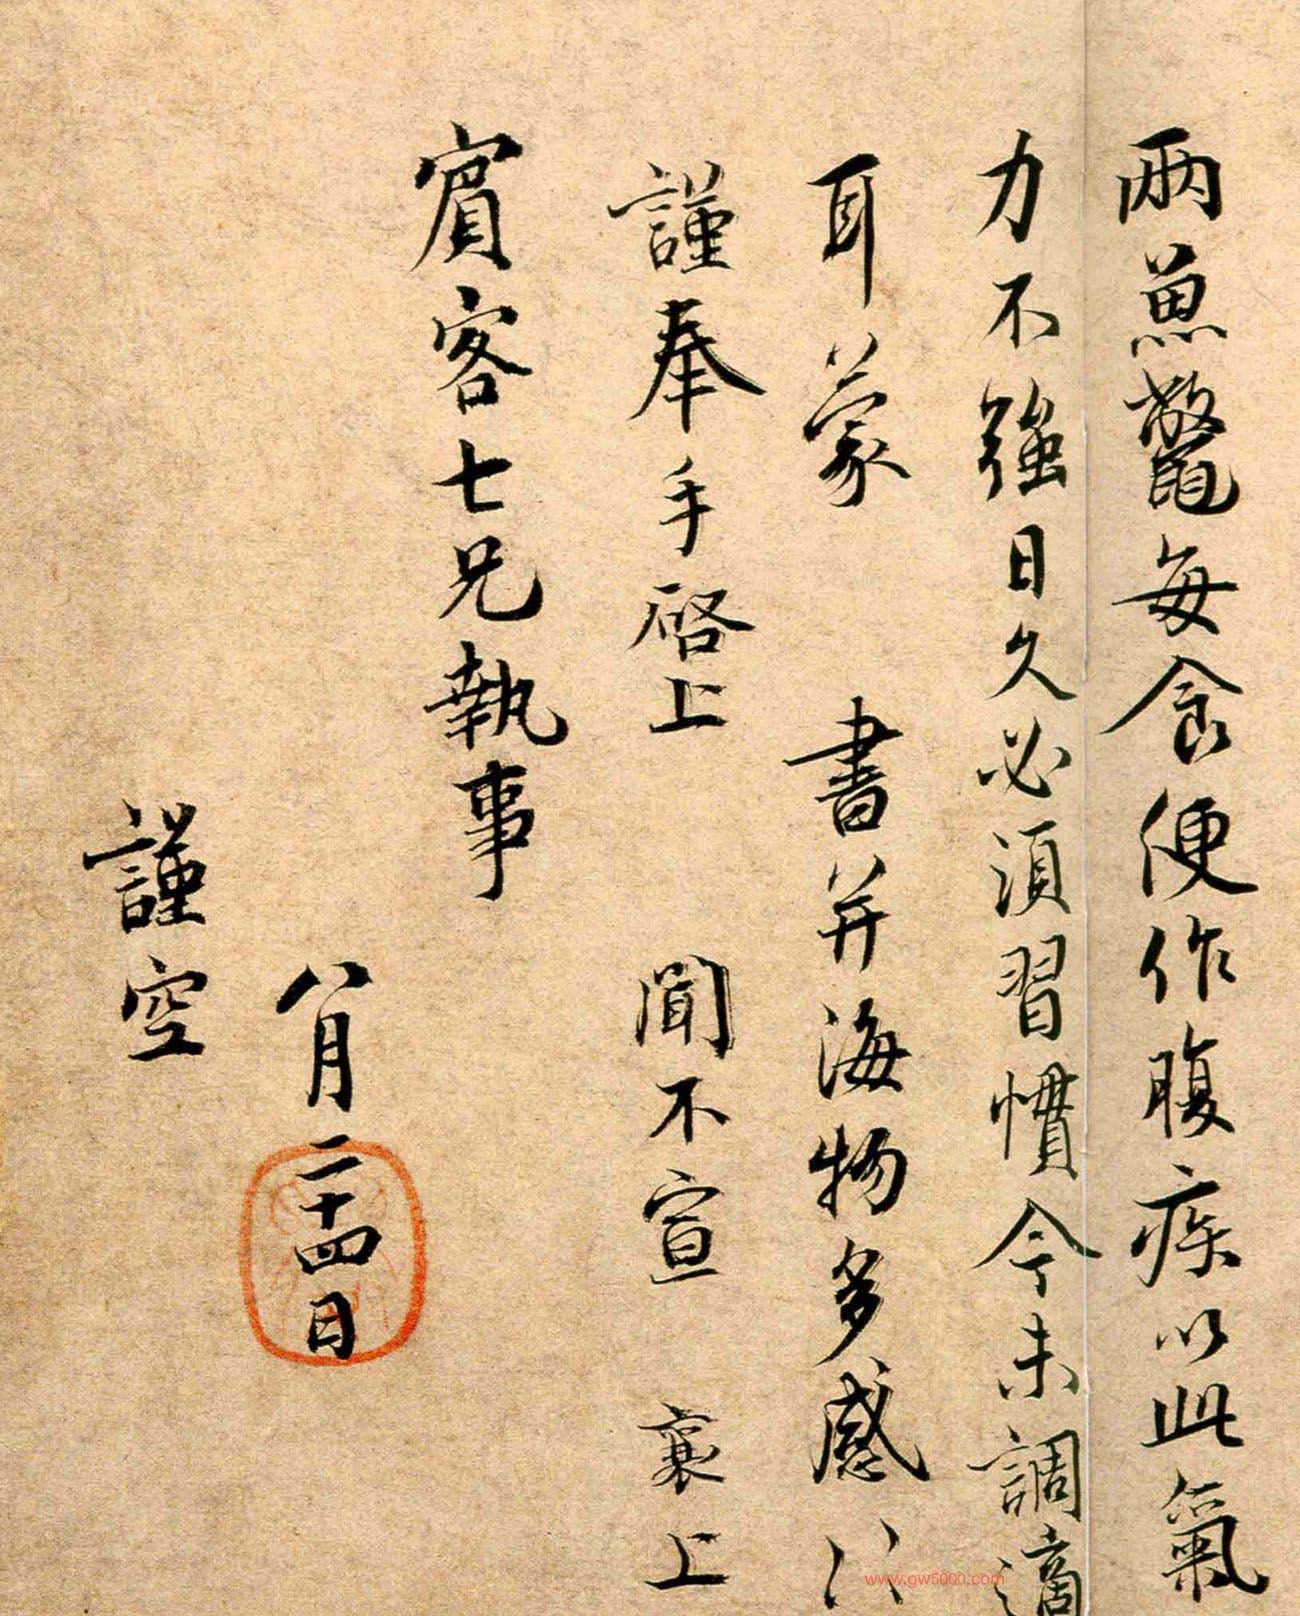 兩魚鼈每食便作腹疾以此氣
力不強日久必須習慣今未調適
耳蒙 書并海物多感八
謹奉手啓上 聞不宣 襄上
賓客七兄執事
八月二十四日
謹空
www.gw5000.com